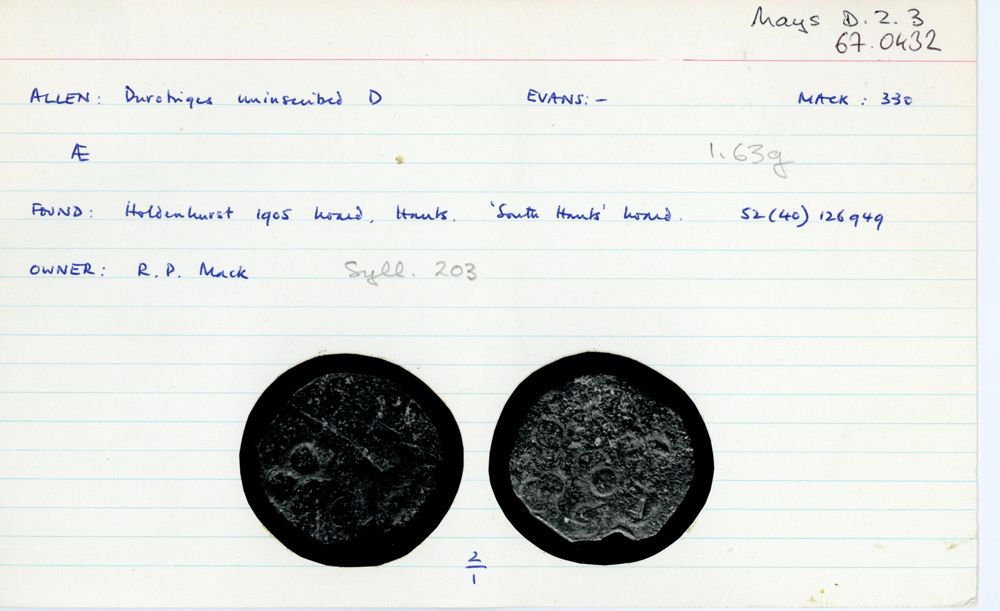 Mays D.2.3
67.0432
ALLEN: Durotriges uninscribed D EVANS: - MACK: 330
Æ 1.63g
FOUND: Holdenhurst 1905 hoard, Hants. 'South Hants' hoard. SZ(40) 126949
OWNER: R.P. Mack Syll. 203
2
1